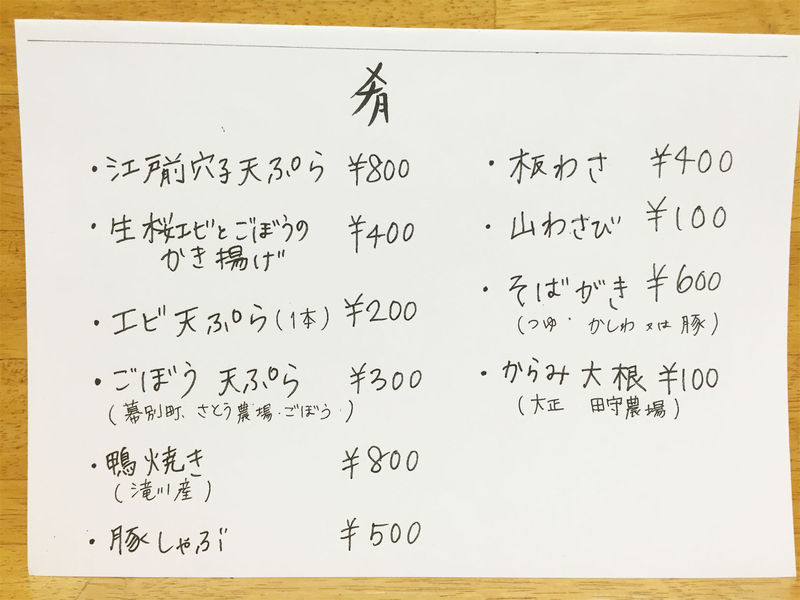 肴
・江戸前穴子天ぷら ¥800
・生桜エビとごぼうの
かき揚げ ¥400
・エビ天ぷら(1本) ¥200
・ごぼう 天ぷら ¥300
(幕別町、さとう農場・ごぼう・)
・鴨焼き ¥800
(滝川産)
・豚しゃぶ ¥500
・板わさ ¥400
・山わさび ¥100
・そばがき ¥600
(つゆ・ かしわ 又は 豚)
・からみ大根 ¥100
(大正 田守農場)